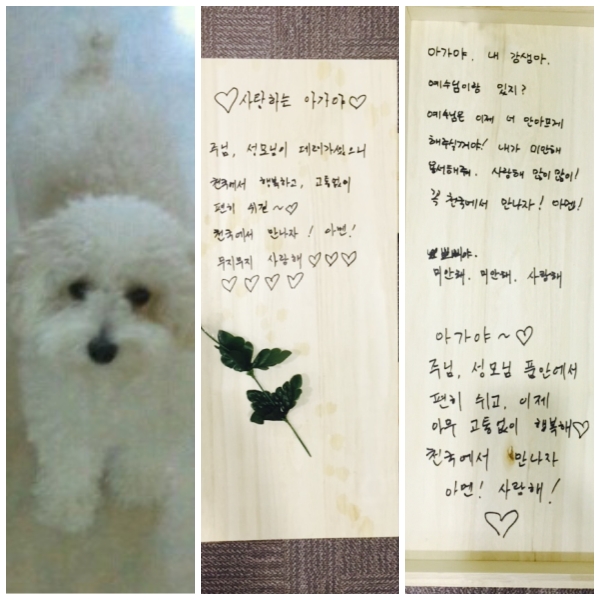 ♡사랑하는 아가야♡
주님, 성모님이 데려가셨으니
천국에서 행복하고, 고통없이
편히 쉬렴~♡
천국에서 만나자! 아멘!
무지무지 사랑해♡♡♡
♡♡♡♡
아가야. 내 강생아.
예수님이랑 있지?
예수님은 이제 너 안아프게
해주실꺼야! 내가 미안해
용서해줘. 사랑해 많이많이!
꼭 천국에서 만나자! 아멘!
미안해. 미안해. 사랑해
아가야~♡
주님, 성모님 품안에서
편히 쉬고, 이제
아무 고통없이 행복해♡
천국에서 만나자
아멘! 사랑해!
♡